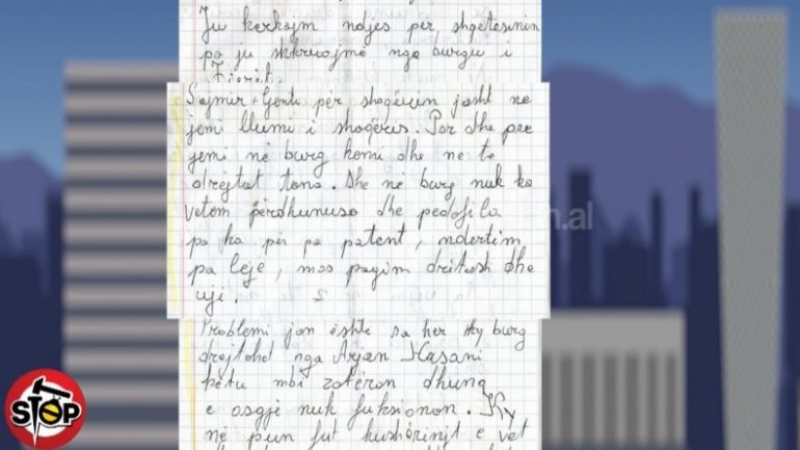 Ju kerkojm ndjes për shqetesimin
po ju shkruojmë nga burgu i
Fierit.
Sajmir Gent për shoqërin jasht ne
jemi llumi i shoqëris. Por dhe pse
jemi në burg kemi dhe ne te
drejtat tona. Dhe në burg nuk ka
vetem përdhunusa dhe pedofila
po ka për pa patent, ndertim
pa leje, mos pagim dritash dhe
uji.
Problemi jon është sa her ky burg
drejtohet nga Arjan Hasani
këtu mbi zotëron dhuna
e asgjë nuk fuksionon. Ky
në pun fut kushërinjt e vet
n.al
STOP